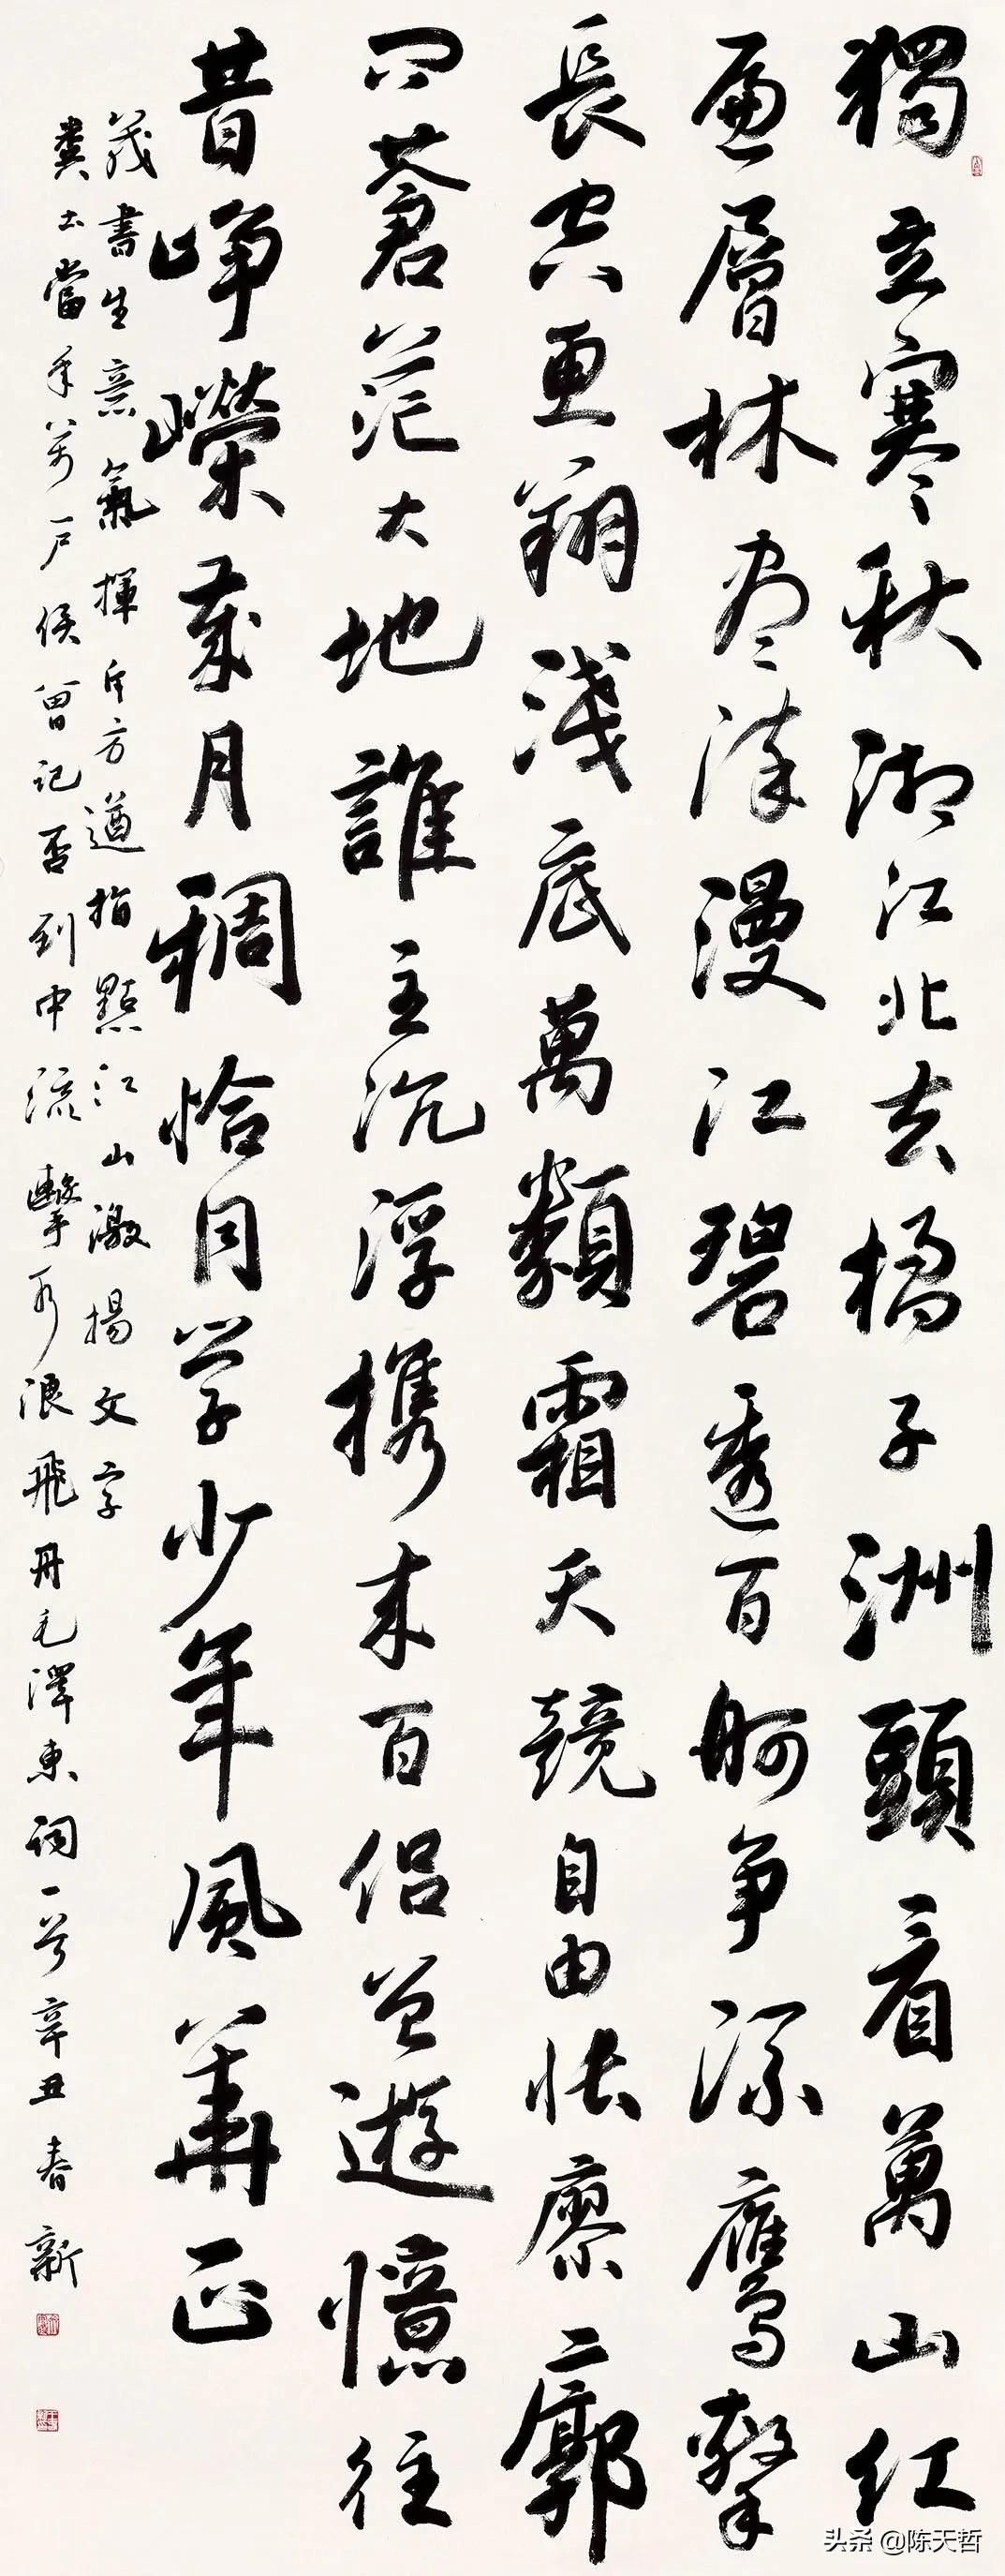 獨立寒秋湘江北去橘子洲頭看萬山红
遍層林尽染漫江碧透百舸争流鷹擊
長空魚翔淺底萬類霜天競自由悵寥廓
問蒼茫大地誰主沉浮携来百侣曾遊憶往
昔峥嶸歲月稠恰同学少年風華正
茂書生意氣揮斥方遒指點江山激揚文字
糞土當年萬户侯曾記否到中流擊水浪飛舟毛澤東詞一首辛丑春新
头条 @陈天哲